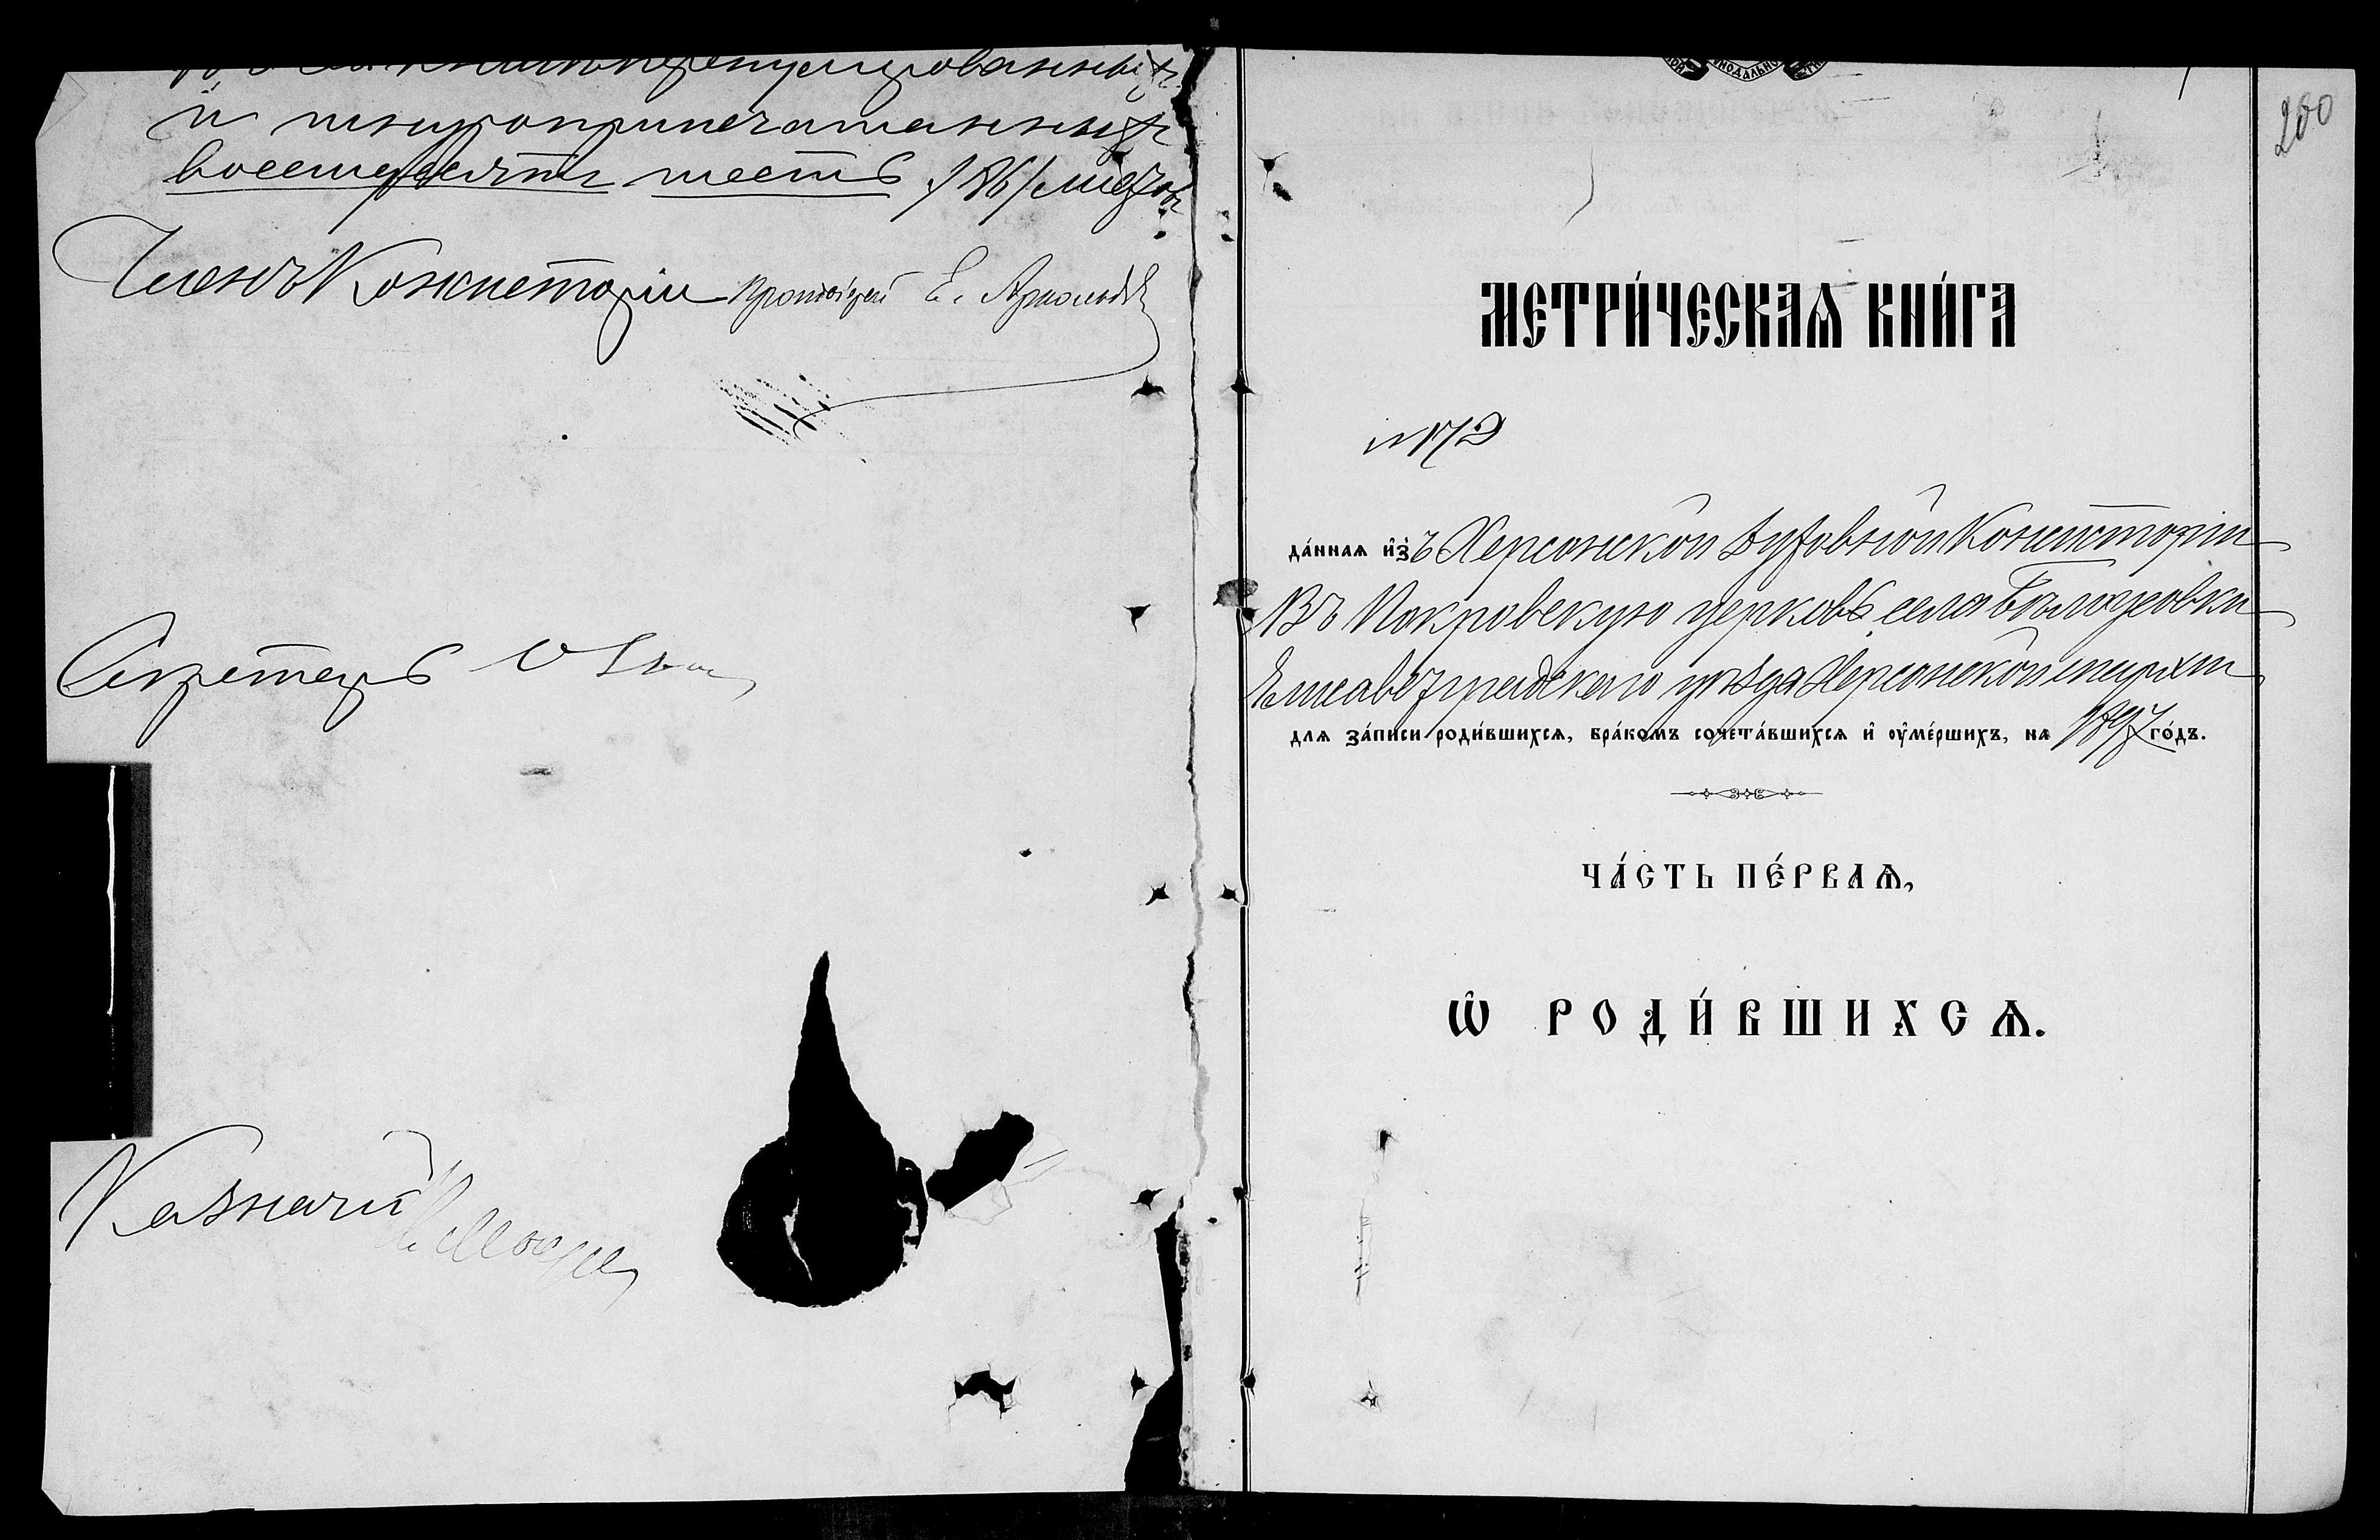 перенумерованныхъ
и шнуроприпечатанныхъ
восемьдесятъ шесть /86/ листовъ
Членъ Консисторіи Протоіерей Е. Арнольдовъ
Секретарь
Казначей
200
МЕТРИ́ЧЕСКАѦ КНИ́ГА
№ 172
да́ннаѧ и҆зъ Херсонской Духовной Консисторіи
Въ Покровскую церковь села
Елисаветградскаго уѣзда Херсонской епархіи
длѧ за́писи роди́вшихсѧ, бра́комъ сочета́вшихсѧ и҆ оу҆ме́ршихъ, на 1897 го́дъ.
ЧА́СТЬ ПЕ́РВАѦ,
Ѡ҆ РОДИ́ВШИХСѦ.